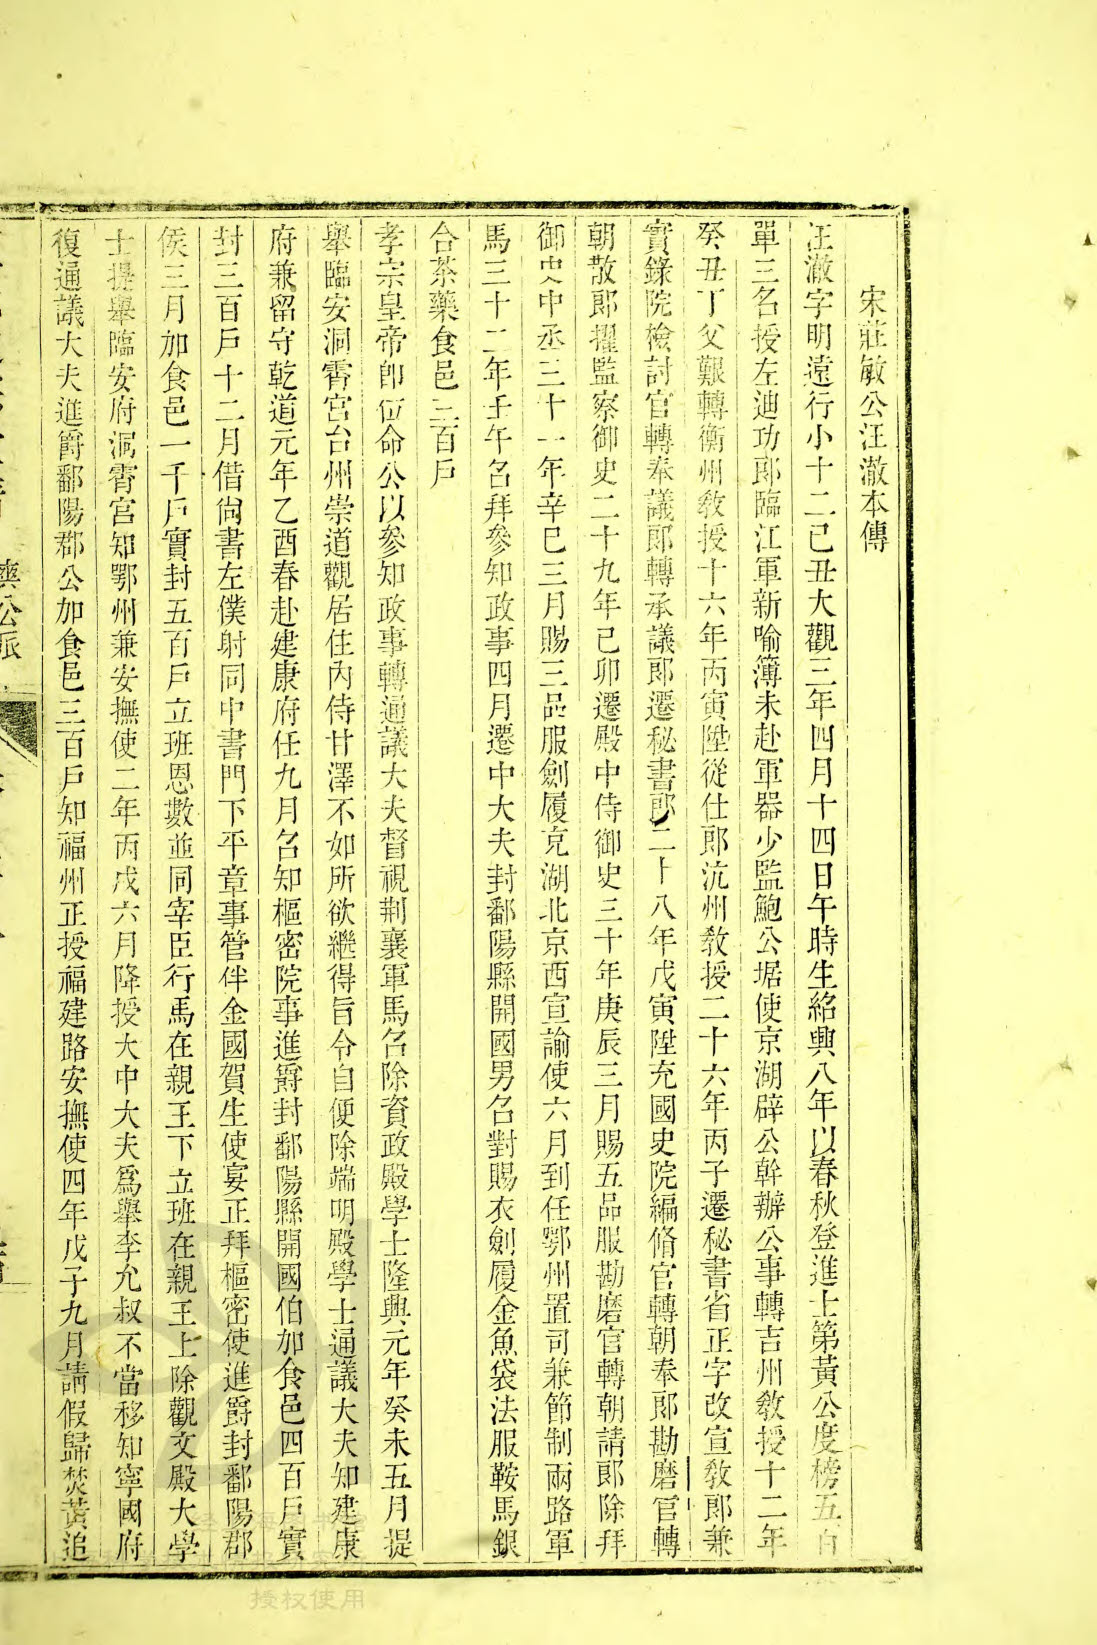 宋莊敏公汪澈本傳
汪澈字明遠行小十二己丑大觀三年四月十四日午時生紹興八年以春秋登進士第黃公度榜五百
單三名授左迪功郎臨江軍新喻簿未赴軍器少監鮑公琚使京湖辟公幹辦公事轉吉州敎授十二年
癸丑丁父艱轉衡州敎授十六年丙寅陞從仕郎沆州敎授二十六年丙子遷秘書省正字改宣敎郎兼
實錄院檢討官轉奉議郎轉承議郎遷秘書郎二十八年戊寅陞充國史院編脩官轉朝奉郎勘磨官轉
朝散郎擢監察御史二十九年己卯遷殿中侍御史三十年庚辰三月賜五品服勘磨官轉朝請郎除拜
御史中丞三十一年辛巳三月賜三品服劍履克湖北京西宣諭使六月到任鄂州置司兼節制兩路軍
馬三十二年壬午名拜參知政事四月遷中大夫封鄱陽縣開國男名對賜衣劍履金魚袋法服鞍馬銀
合茶藥食邑三百戶
孝宗皇帝卽位命公以參知政事轉通議大夫督視荆襄軍馬名除資政殿學士隆興元年癸未五月提
舉臨安洞霄宮台州崇道觀居住內侍甘澤不如所欲繼得旨令自便除端明殿學士通議大夫知建康
府兼留守乾道元年乙酉春赴建康府任九月名知樞密院事進爵封鄱陽縣開國伯加食邑四百戶實
封三百戶十二月借尙書左僕射同中書門下平章事管伴金國賀生使宴正拜樞密使進爵封鄱陽郡
侯三月加食邑一千戶實封五百戶立班恩數並同宰臣行馬在親王下立班在親王上除觀文殿大學
士提舉臨安府洞霄宮知鄂州兼安撫使二年丙戌六月降授大中大夫爲舉李允叔不當移知寧國府
復通議大夫進爵鄱陽郡公加食邑三百戶知福州正授福建路安撫使四年戊子九月請假歸焚黃追
公派
授权使用